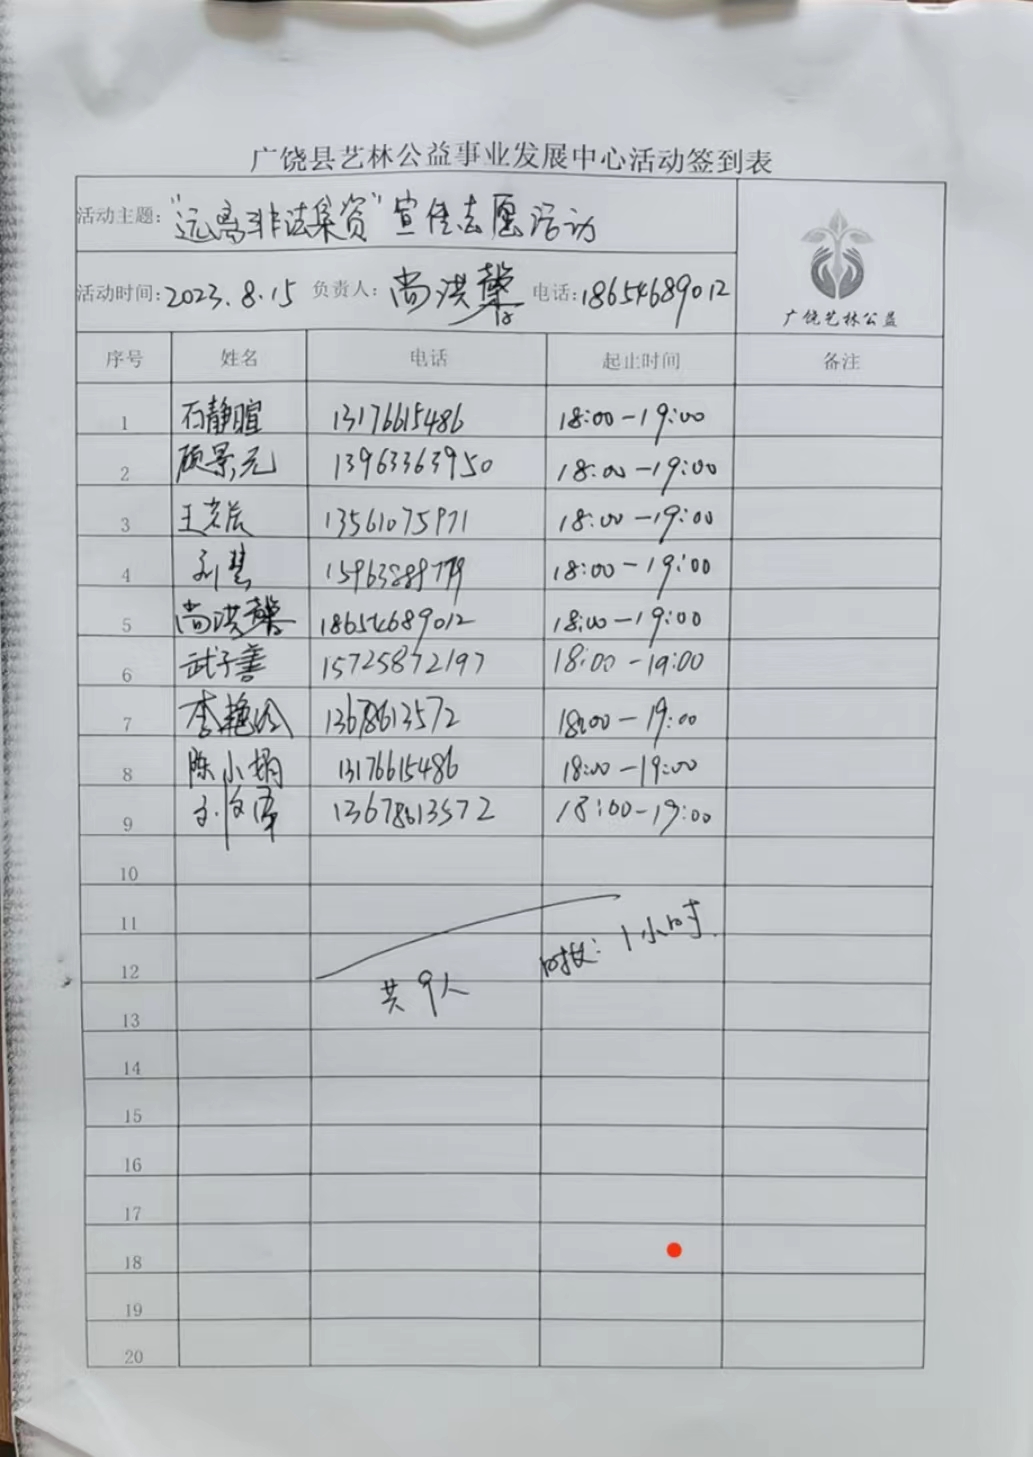 广饶县艺林公益事业发展中心活动签到表
活动主题：“远离非法集资”宣传志愿活动
活动时间：2023.8.15 负责人：尚洪馨 电话：18654689012
广饶艺林公益
序号 姓名 电话 起止时间 备注
1 石静暄 13176615486 18:00-19:00
2 顾景元 13963363950 18:00-19:00
3 13561075971 18:00-19:00
4 刘慧 18:00-19:00
5 尚洪馨 18654689012 18:00-19:00
6 武子善 15725872197 18:00-19:00
7 李艳玲 13678613572 18:00-19:00
8 陈小娟 13176615486 18:00-19:00
9 13678613572 18:00-19:00
10
11
12
共9人 时长：1小时.
13
14
15
16
17
18
19
20